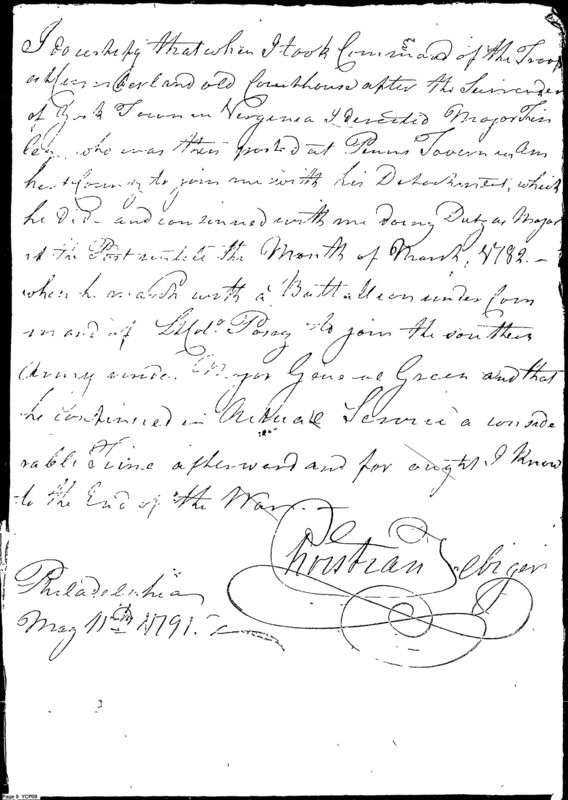 I do certify that when I took Command of the Troops
at Cumberland old Courthouse after the Surrender
of York Town in Virginia I directed Major Fin
ley who was then posted at Penns Tavern in Am
herst County to join me with his Detachment, which
he did and continued with me doing Duty as Major
at the Post untill the Month of March, 1782. –
when he march with a Battallion under Com
mand of Lt Colo. Posey to join the southern
Army under Major General Green and that
he continued in Actuall Service a conside
rable Time afterward and for ought I know
to the End of the War. –
Christian Febiger
Philadelphia
May 11th 1791.
Page 9 YCP08